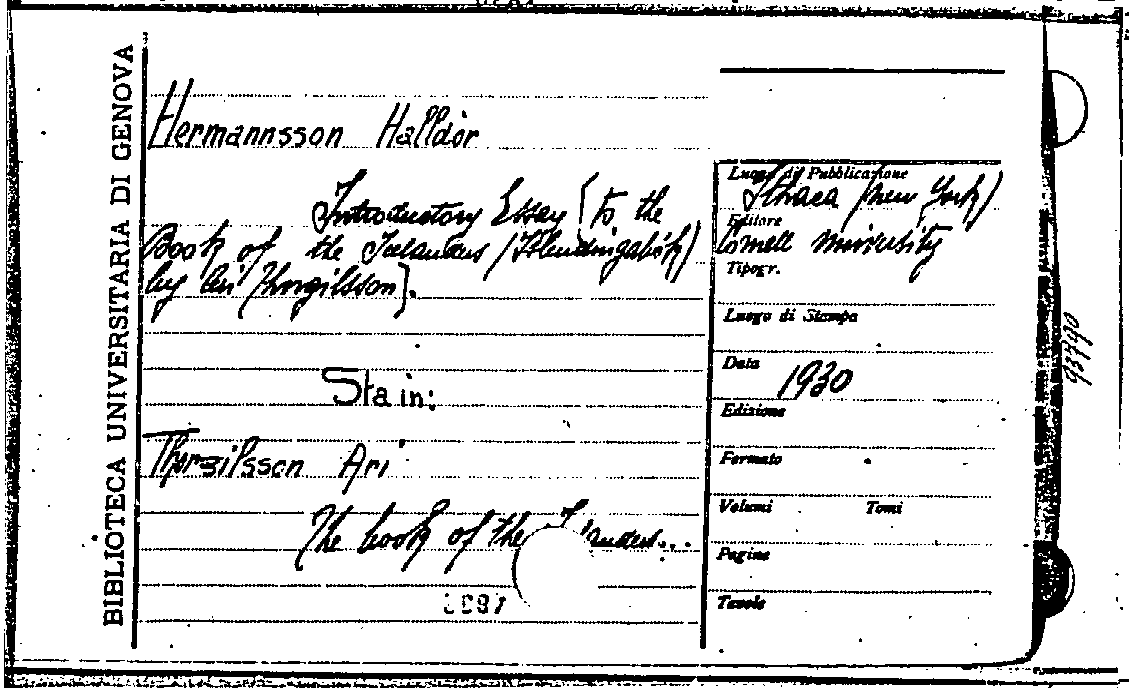 BIBLIOTECA UNIVERSITARIA DI GENOVA
Hermannsson Halldór
Introductory Essay [to the
Book of the Icelanders (Islendingabók)
by Ari Thorgilsson].
Sta in:
Thorgilsson Ari
The book of the ...
Luogo di Pubblicazione
Ithaca (New York)
Editore
Cornell University
Tipogr.
Luogo di Stampa
Data
1930
Edizione
Formato
Volumi Tomi
Pagine
Tavole